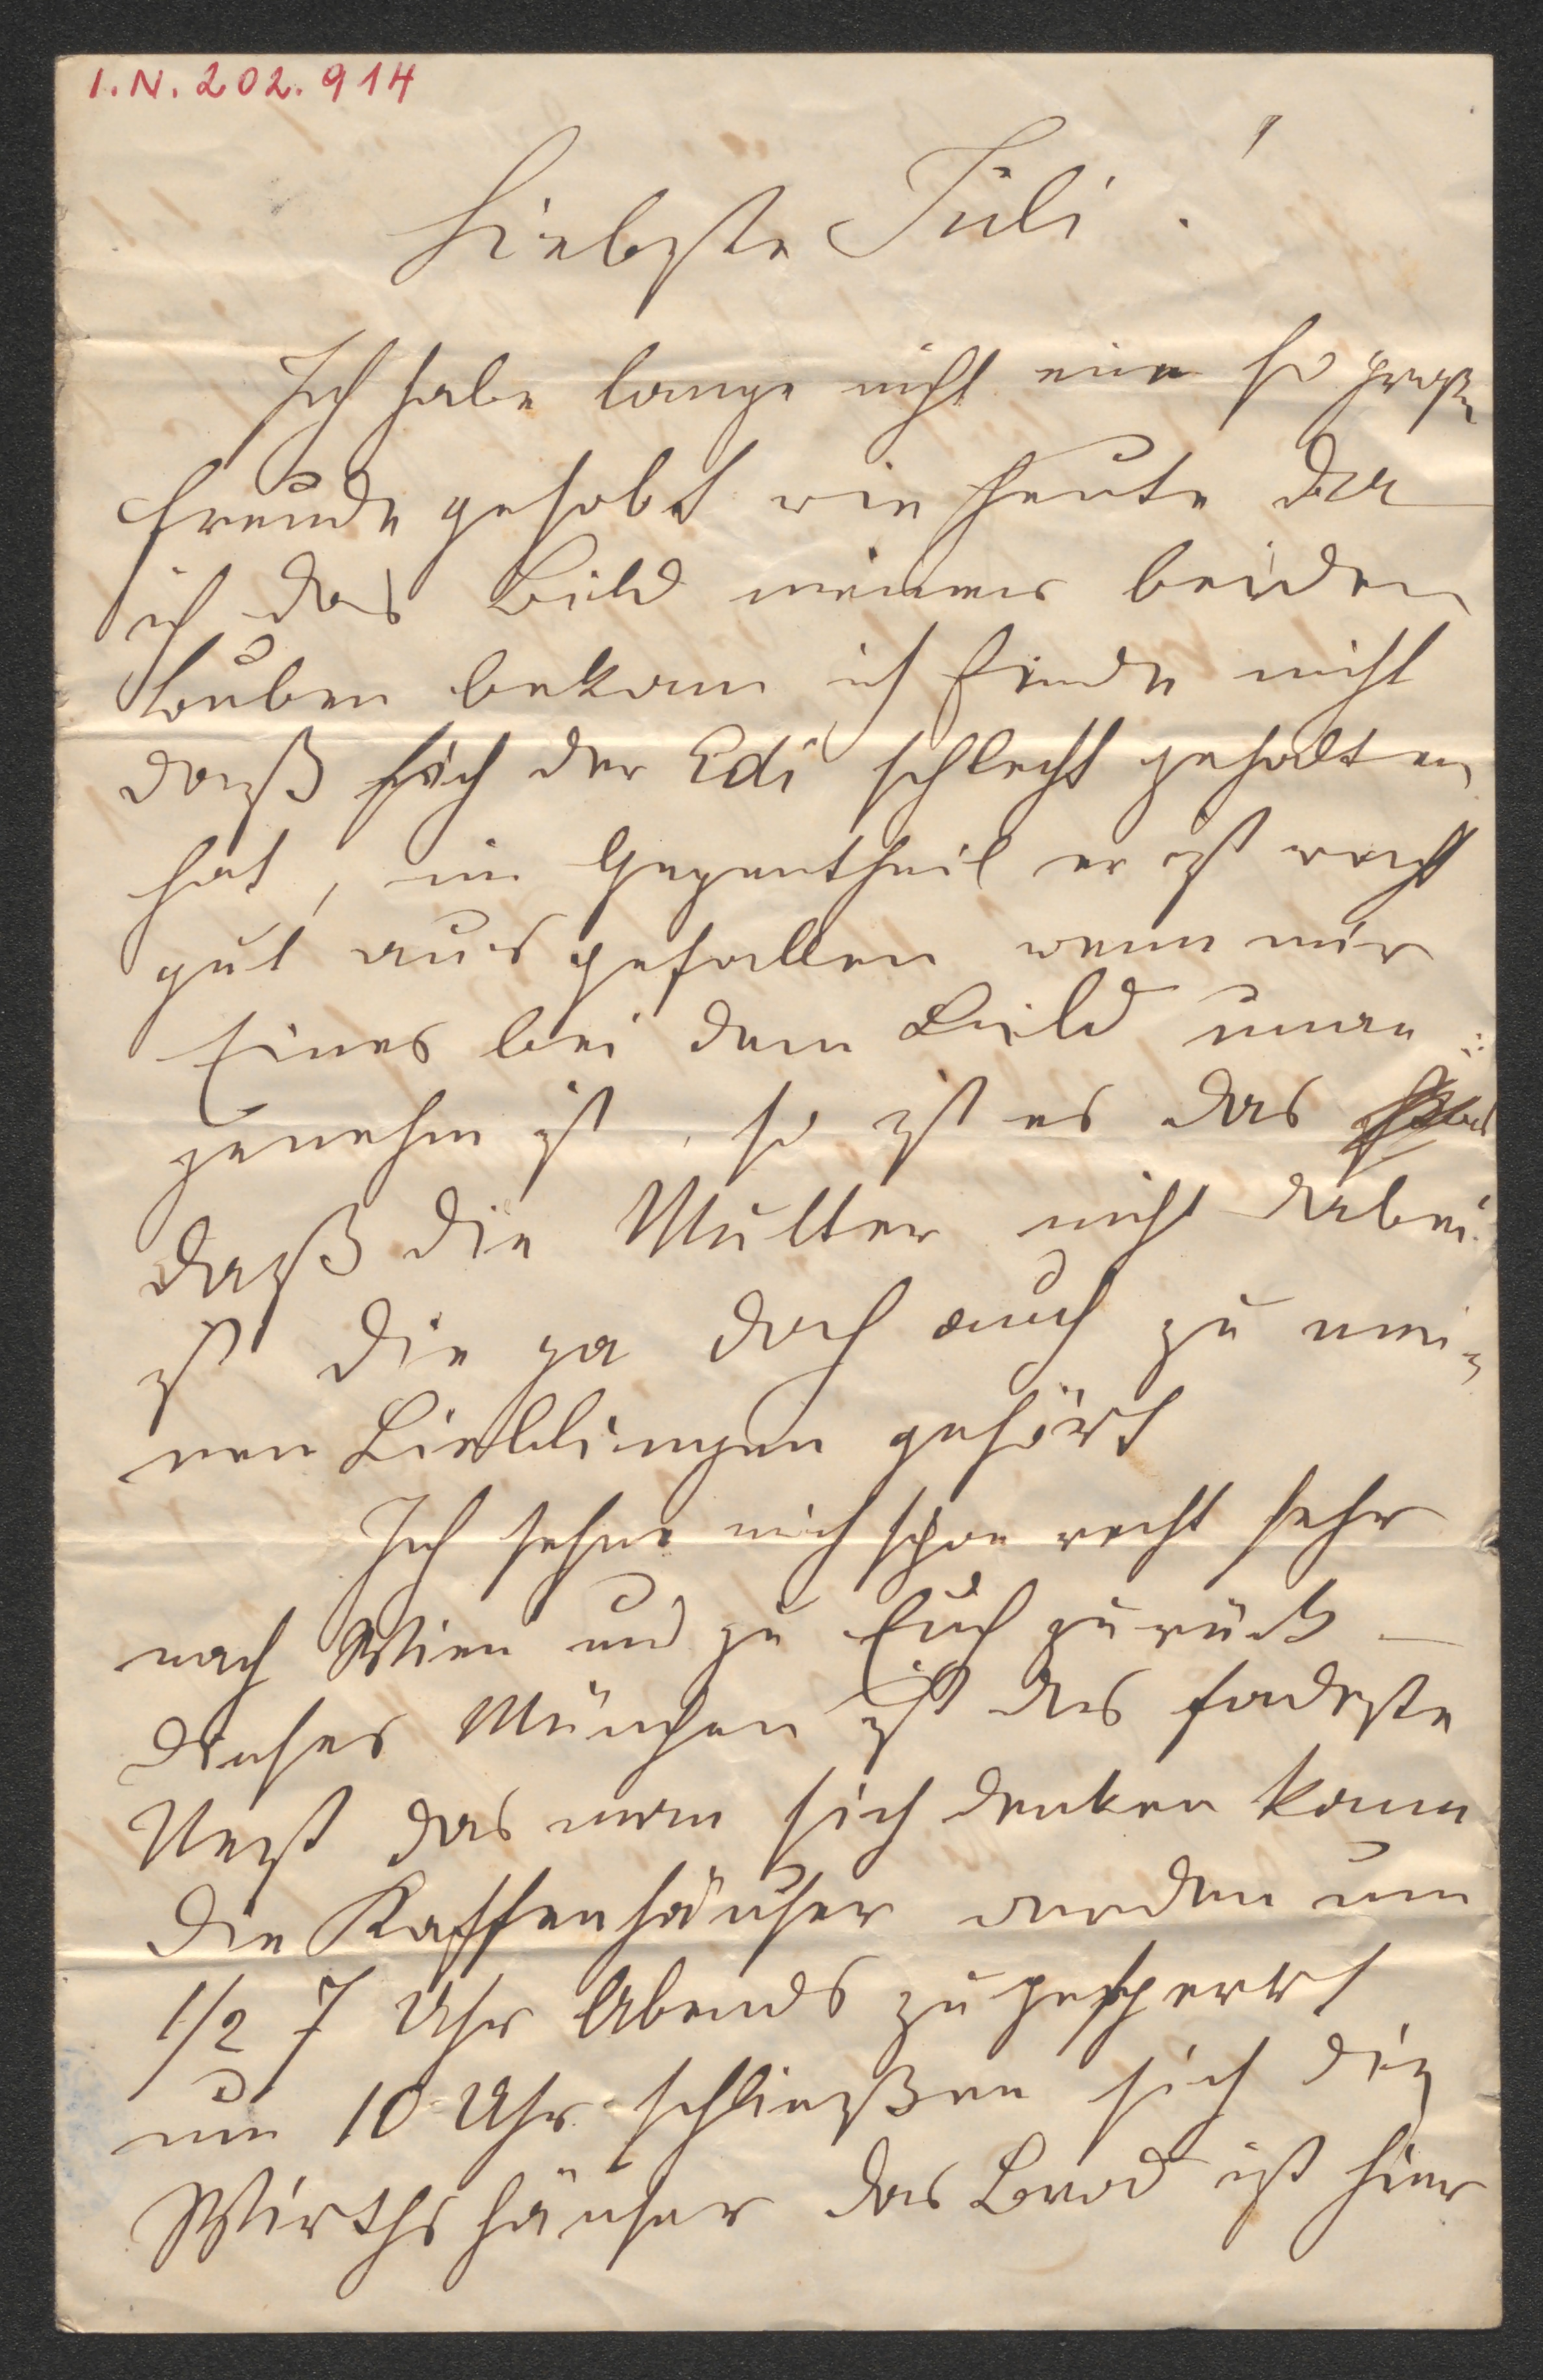 I.N. 202.914
Liebste Juli!
Ich habe lange nicht eine so große
Freude gehabt wie heute da
ich das Bild meiner beiden
Buben bekam ich finde nicht
daß sich der Edi schlecht gehalten
hat, im Gegentheil er ist recht
gut ausgefallen wenn mir
Eines bei dem Bild unan=
genehm ist, so ist es das
daß die Mutter nicht dabei
ist die ja doch auch zu mei=
nen Lieblingen gehört
Ich sehne mich schon recht sehr
nach Wien und zu Euch zurück –
dieses München ist das fadeste
Nest das man sich denken kann
die Kaffeehäuser werden um
1/2 7 Uhr Abends zugesperrt
um 10 Uhr schließen sich die
Wirthshäuser das Brod ist hier